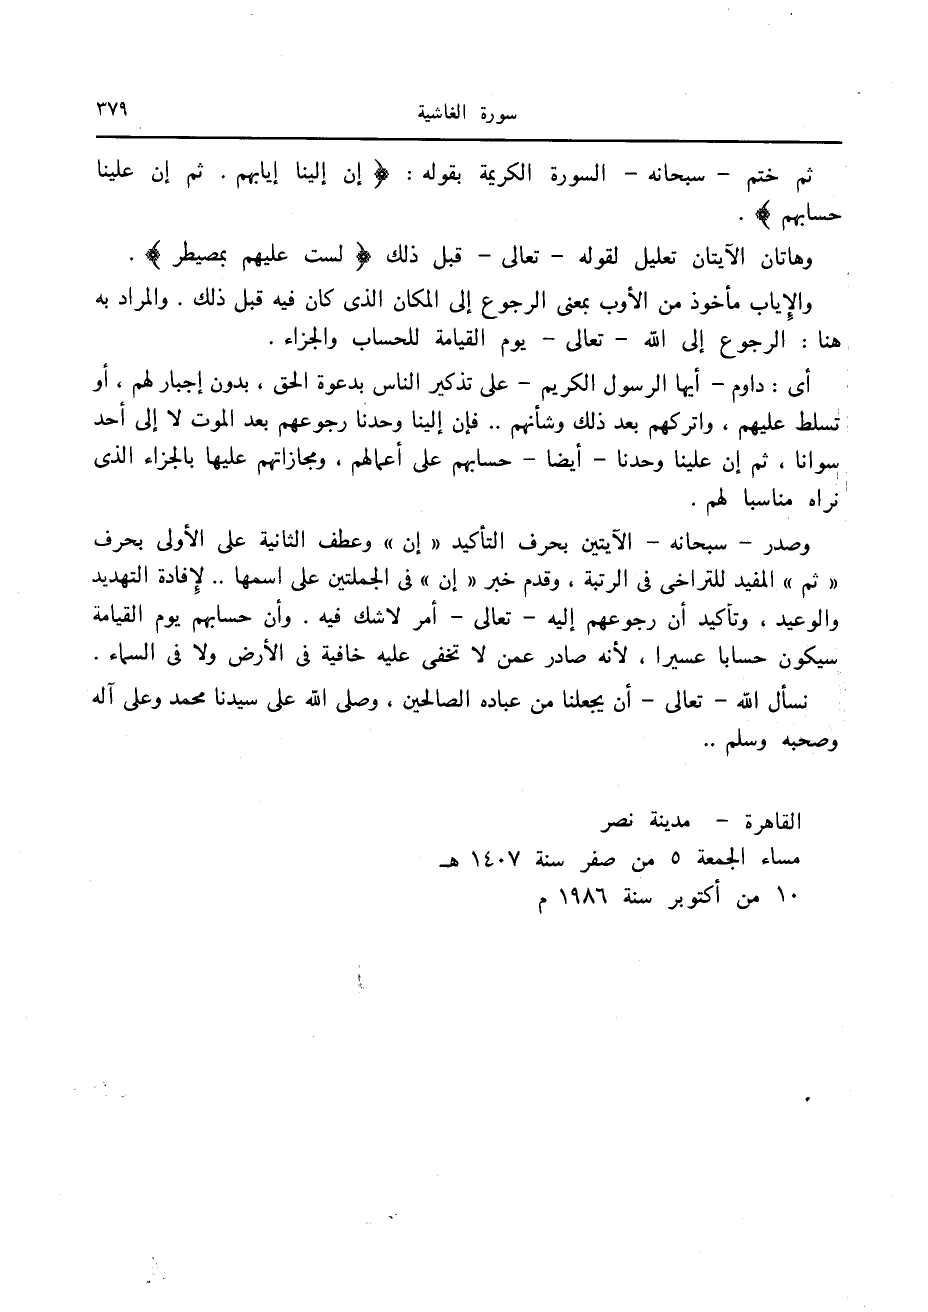 سورة الغاشية ٣٧٩
ثم ختم – سبحانه – السورة الكريمة بقوله : ﴿ إن إلينا إيابهم . ثم إن علينا
حسابهم ﴾ .
وهاتان الآيتان تعليل لقوله – تعالى – قبل ذلك ﴿ لست عليهم بمصيطر ﴾ .
والإياب مأخوذ من الأوب بمعنى الرجوع إلى المكان الذى كان فيه قبل ذلك . والمراد به
هنا : الرجوع إلى الله – تعالى – يوم القيامة للحساب والجزاء .
أى : داوم – أيها الرسول الكريم – على تذكير الناس بدعوة الحق ، بدون إجبار لهم ، أو
تسلط عليهم ، واتركهم بعد ذلك وشأنهم .. فإن إلينا وحدنا رجوعهم بعد الموت لا إلى أحد
سوانا ، ثم إن علينا وحدنا – أيضا – حسابهم على أعمالهم ، ومجازاتهم عليها بالجزاء الذى
نراه مناسبا لهم .
وصدر – سبحانه – الآيتين بحرف التأكيد « إن » وعطف الثانية على الأولى بحرف
« ثم » المفيد للتراخى فى الرتبة ، وقدم خبر « إن » فى الجملتين على اسمها .. لإفادة التهديد
والوعيد ، وتأكيد أن رجوعهم إليه – تعالى – أمر لاشك فيه . وأن حسابهم يوم القيامة
سيكون حسابا عسيرا ، لأنه صادر عمن لا تخفى عليه خافية فى الأرض ولا فى السماء .
نسأل الله – تعالى – أن يجعلنا من عباده الصالحين ، وصلى الله على سيدنا محمد وعلى آله
وصحبه وسلم ..
القاهرة – مدينة نصر
مساء الجمعة ٥ من صفر سنة ١٤٠٧ هـ
١٠ من أكتوبر سنة ١٩٨٦ م